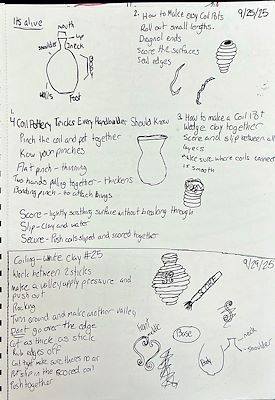 It's alive
mouth
lip
neck
shoulder
Body
Walls
Foot
2. How to Make easy Coil Pots
9/25/25
Roll out small lengths.
Diagnol ends
Score the surfaces
Seal edges
1.
4 Coil Pottery Tricks Every Handbuilder Should Know
Pinch the coil and pot together
Know your pinches
Flat pinch - thinning
Two hands pulling together - thickens
Bonding pinch - to attach things
Score - lightly scratching surface without breaking through
Slip - Clay and water
Secure - Push coils slipped and scored together
3. How to make a Coil Pot
Wedge clay together
Score and slip between all
layers
Make sure where coils connect
is smooth
Coiling - White Clay #25
9/25/25
Work between 2 sticks
Make a valley apply pressure and
push out
Rocking
Turn around and make another valley
Don't go over the edge
Cut as thick as stick
Rub edges off
Coil tight make sure theres no air
Put slip in the scored coil
Push together
Base
Body
neck
shoulder